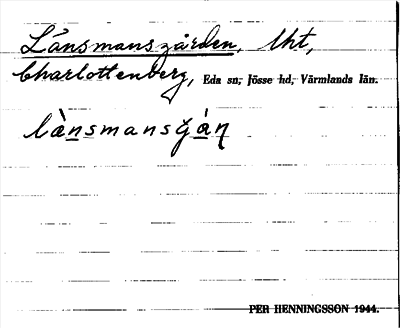 Länsmansgården, Uht,
Charlottenberg, Eda sn, Jösse hd, Värmlands län.
là̀nsmansgá̀ɳ
PER HENNINGSSON 1944.